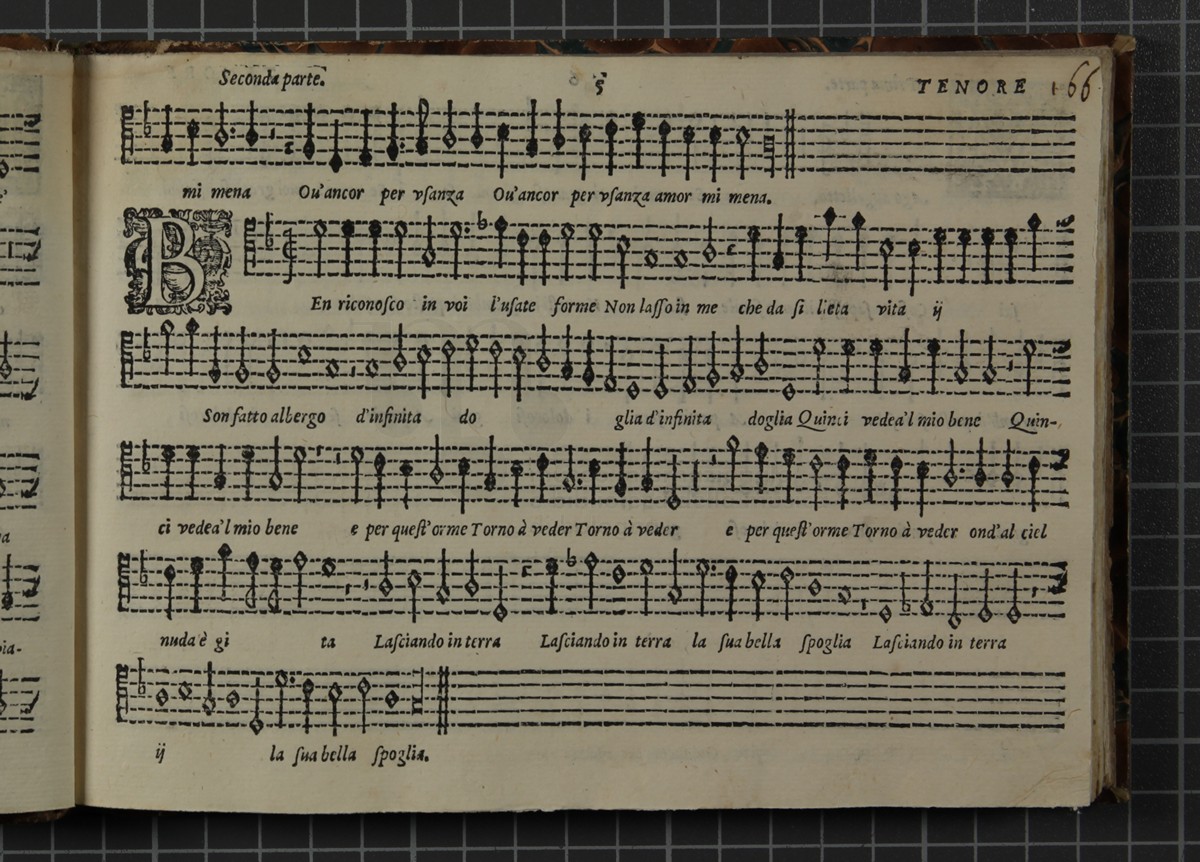 Seconda parte. 5 TENORE 166
mi mena Ou'ancor per vſanza Ou'ancor per vſanza amor mi mena.
BEn riconoſco in voi l'uſate forme Non laſſo in me che da ſi lieta vita ij
Son fatto albergo d'infinita do glia d'infinita doglia Quinci vedea'l mio bene Quin-
ci vedea'l mio bene e per queſt'orme Torno à veder Torno à veder e per queſt'orme Torno à veder ond'al ciel
nuda è gi ta Laſciando in terra Laſciando in terra la ſua bella ſpoglia Laſciando in terra
ij la ſua bella ſpoglia.